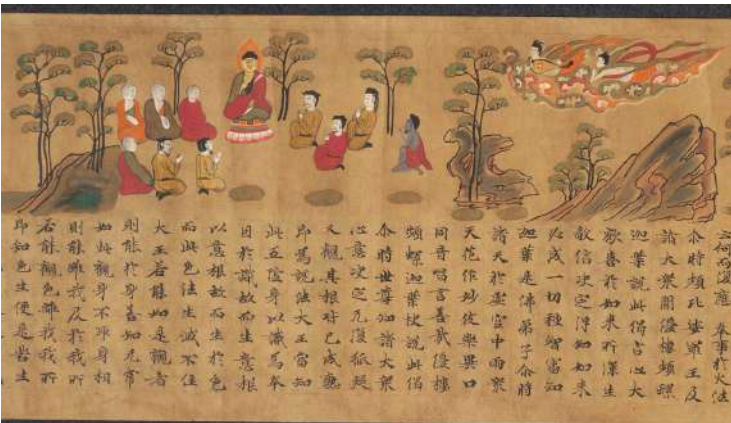 云何而復應　奉事於火法
尒時頻毗娑羅王及
諸大衆聞優樓頻螺
迦葉說此偈言心大
歡喜於如来所深生
敬信决定得知如来
以成一切種智審知
迦葉是佛弟子尒時
諸天於虚空中雨衆
天花作妙伎樂異口
同音唱言善哉優樓
頻螺迦葉快說此偈
尒時世尊知諸大衆
心意决定无復狐疑
又觀其根已成
即為說法大王當知
此五陰身以識為本
因於識故而生意根
以意根故而生於色
而此色法生滅不住
大王若能如是觀者
則能於身善知无常
如此觀身不取身相
則能離我及於我所
若能觀色離我我所
即知色生便是苦生